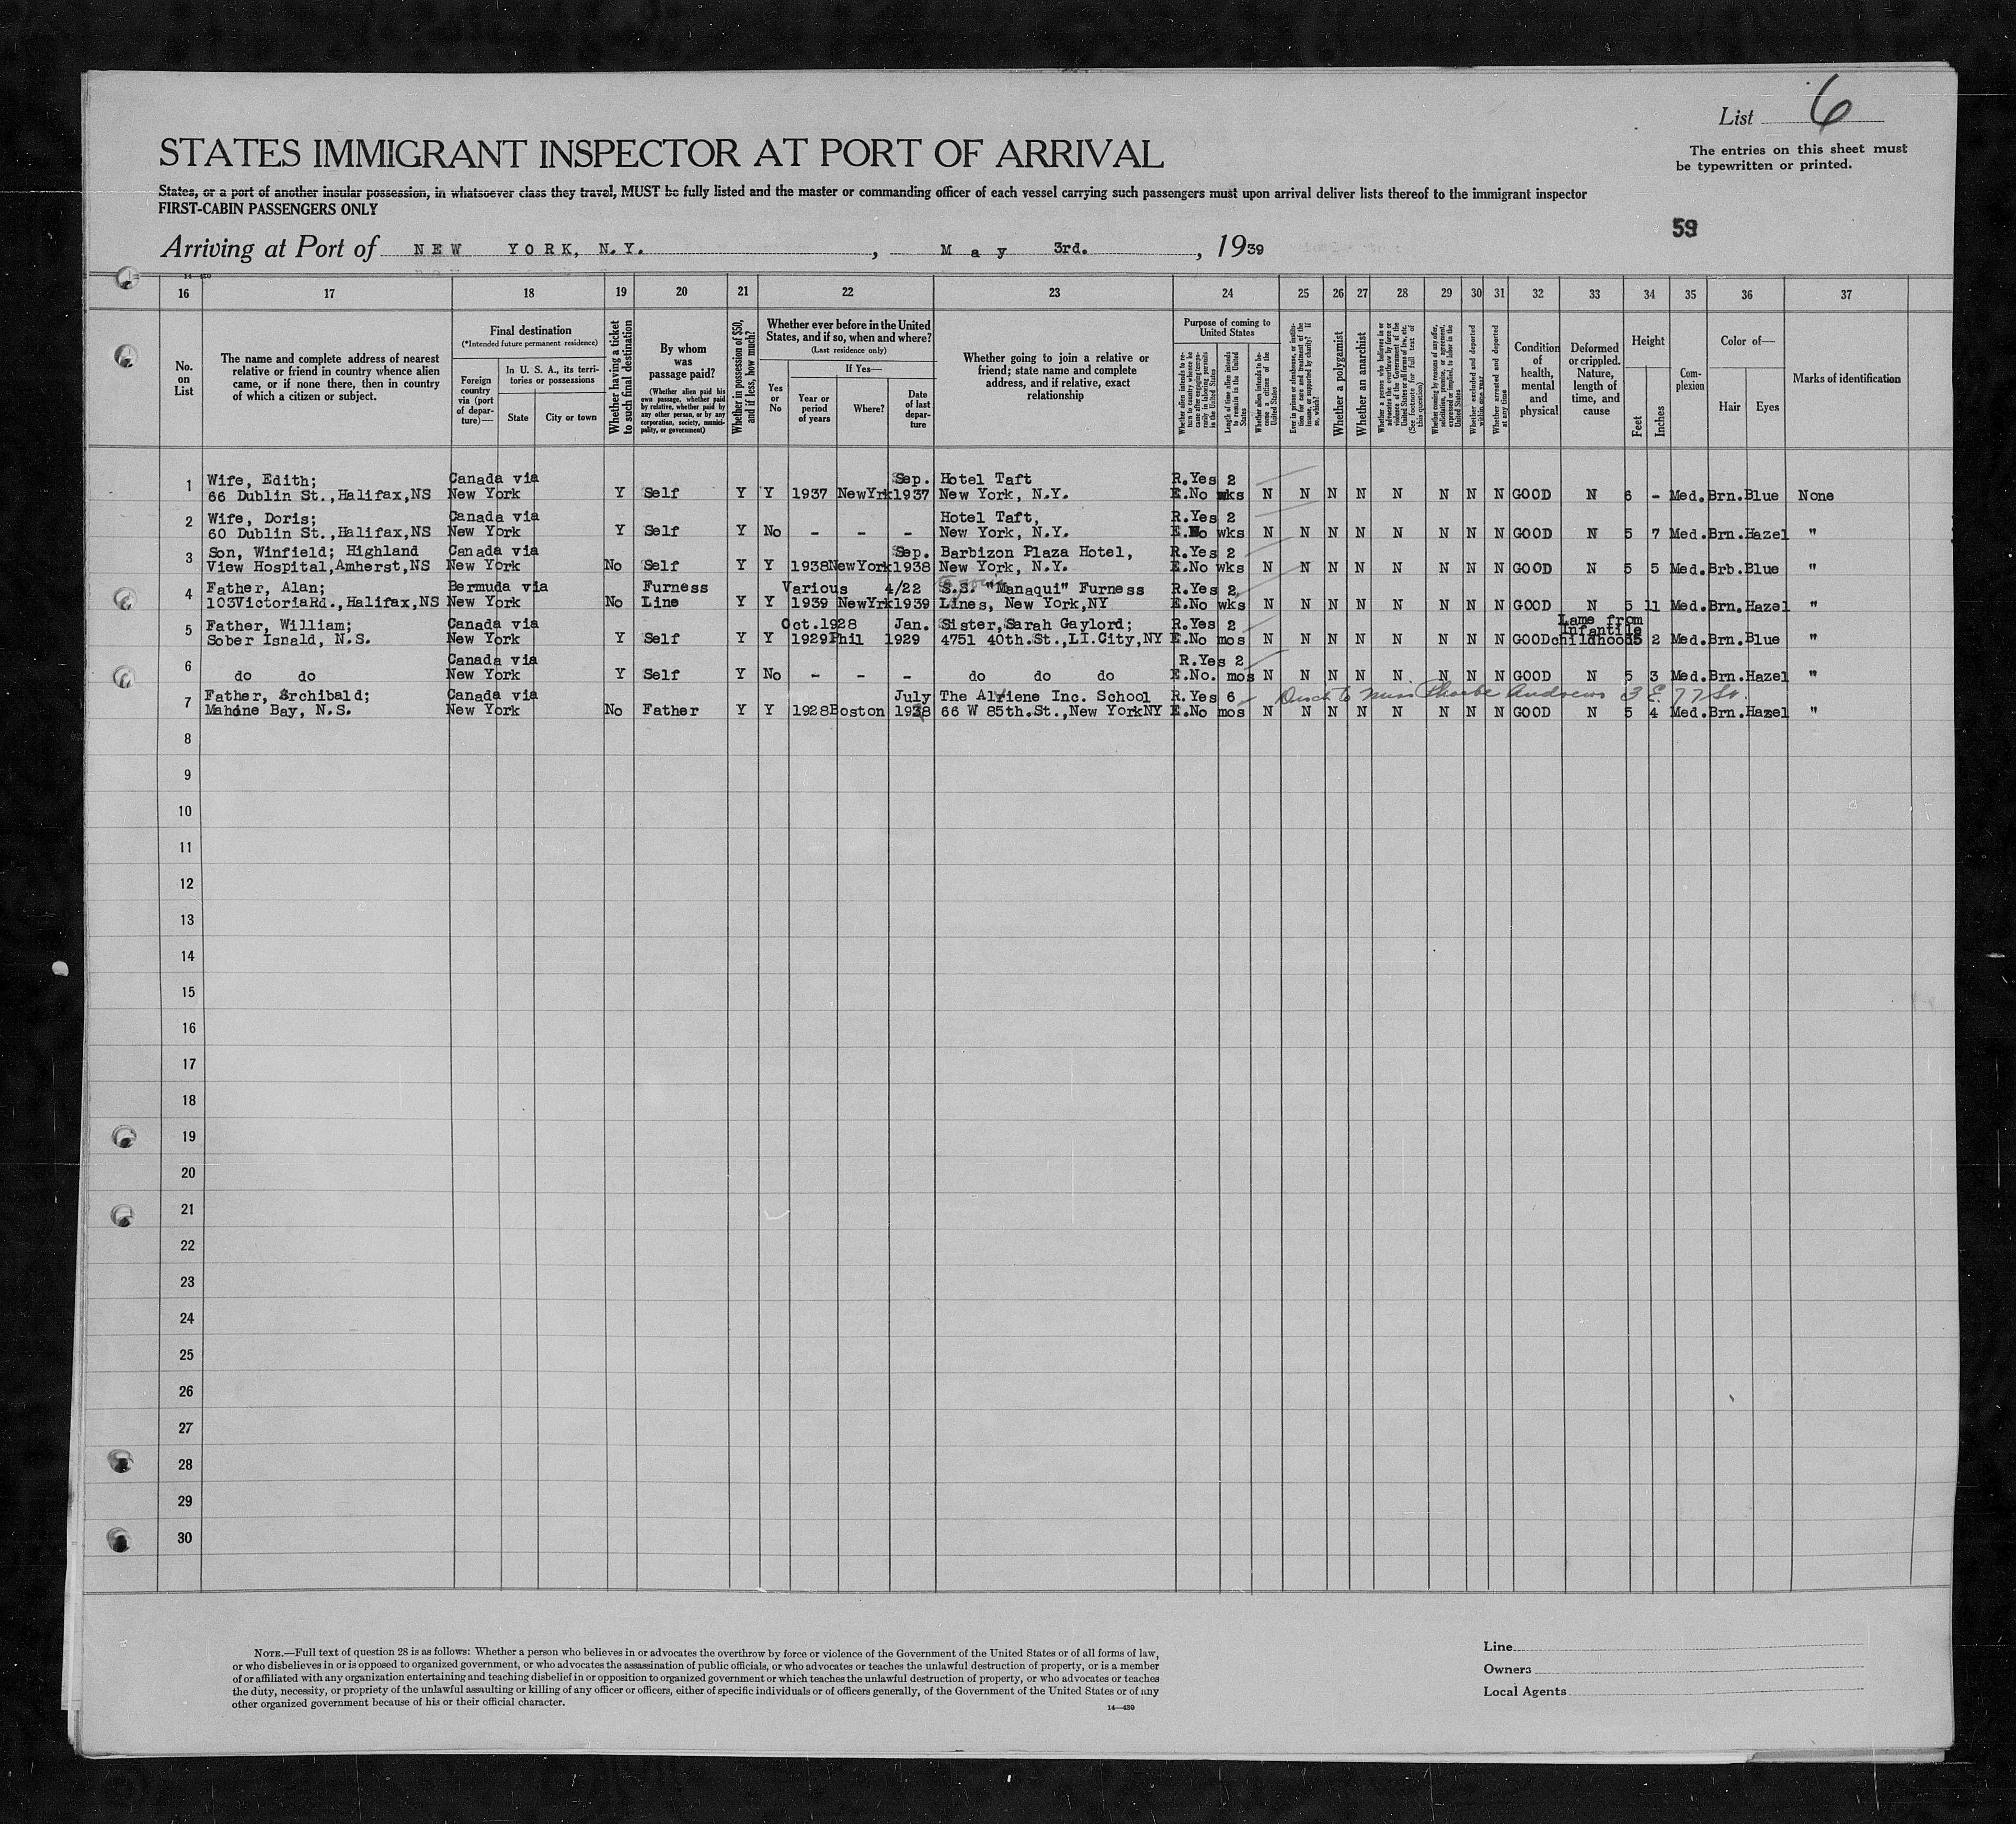 List 6
The entries on this sheet must
be typewritten or printed.
STATES IMMIGRANT INSPECTOR AT PORT OF ARRIVAL
States, or a port of another insular possession, in whatsoever class they travel, MUST be fully listed and the master or commanding officer of each vessel carrying such passengers must upon arrival deliver lists thereof to the immigrant inspector
FIRST-CABIN PASSENGERS ONLY
59
Arriving at Port of NEW YORK, N.Y., May 3rd., 1939
16 17 18 19 20 21 22 23 24 25 26 27 28 29 30 31 32 33 34 35 36 37
No. on List
The name and complete address of nearest
relative or friend in country whence alien
came, or if none there, then in country
of which a citizen or subject.
Final destination
(*Intended future permanent residence)
Foreign country via (port of departure)—
In U. S. A., its territories or possessions
State
City or town
Whether having a ticket to such final destination
By whom was passage paid?
(Whether alien paid his own passage, whether paid by relative, whether paid by any other person, or by any corporation, society, municipality, or government)
Whether in possession of $50, and if less, how much?
Whether ever before in the United States, and if so, when and where?
(Last residence only)
Yes or No
If Yes—
Year or period of years
Where?
Date of last departure
Whether going to join a relative or
friend; state name and complete
address, and if relative, exact
relationship
Purpose of coming to United States
Whether alien intends to return to country whence he came after engaging temporarily in laboring pursuits in the United States
Length of time alien intends to remain in the United States
Whether alien intends to become a citizen of the United States
Ever in prison or almshouse, or institution for care and treatment of the insane, or supported by charity? If so, which?
Whether a polygamist
Whether an anarchist
Whether a person who believes in or advocates the overthrow by force or violence of the Government of the United States or all forms of law, etc. (See footnote for full text of this question)
Whether coming by reason of any offer, solicitation, promise, or agreement, expressed or implied, to labor in the United States
Whether excluded and deported within one year
Whether arrested and deported at any time
Condition of health, mental and physical
Deformed or crippled. Nature, length of time, and cause
Height
Feet
Inches
Complexion
Color of—
Hair
Eyes
Marks of identification
1 Wife, Edith; Canada via Sep. Hotel Taft R.Yes 2
66 Dublin St.,Halifax,NS New York Y Self Y Y 1937 NewYrk 1937 New York, N.Y. E.No wks N N N N N N N N GOOD N 6 - Med. Brn. Blue None
2 Wife, Doris; Canada via Hotel Taft, R.Yes 2
60 Dublin St.,Halifax,NS New York Y Self Y No - - - New York, N.Y. E.No wks N N N N N N N N GOOD N 5 7 Med. Brn. Hazel "
3 Son, Winfield; Highland Canada via Sep. Barbizon Plaza Hotel, R.Yes 2
View Hospital,Amherst,NS New York No Self Y Y 1938 NewYork 1938 New York, N.Y. E.No wks N N N N N N N N GOOD N 5 5 Med. Brb. Blue "
4 Father, Alan; Bermuda via Furness Various 4/22 S.S. "Manaqui" Furness R.Yes 2
103VictoriaRd.,Halifax,NS New York No Line Y Y 1939 NewYrk 1939 Lines, New York,NY E.No wks N N N N N N N N GOOD N 5 11 Med. Brn. Hazel "
5 Father, William; Canada via Oct.1928 Jan. Sister,Sarah Gaylord; R.Yes 2 Lame from Infantile
Sober Isnald, N.S. New York Y Self Y Y 1929 Phil 1929 4751 40th.St.,LI.City,NY E.No mos N N N N N N N N GOOD childhood 5 2 Med. Brn. Blue "
6 Canada via R.Yes 2
do do New York Y Self Y No - - - do do do E.No. mos N N N N N N N N GOOD N 5 3 Med. Brn. Hazel "
7 Father, Archibald; Canada via July The Alviene Inc. School R.Yes 6 Disch to Miss Phoebe Andrews 3 E. 77 St.
Mahone Bay, N.S. New York No Father Y Y 1928 Boston 1938 66 W 85th.St.,New YorkNY E.No mos N N N N N N N N GOOD N 5 4 Med. Brn. Hazel "
8
9
10
11
12
13
14
15
16
17
18
19
20
21
22
23
24
25
26
27
28
29
30
NOTE.—Full text of question 28 is as follows: Whether a person who believes in or advocates the overthrow by force or violence of the Government of the United States or of all forms of law,
or who disbelieves in or is opposed to organized government, or who advocates the assassination of public officials, or who advocates or teaches the unlawful destruction of property, or is a member
of or affiliated with any organization entertaining and teaching disbelief in or opposition to organized government or which teaches the unlawful destruction of property, or who advocates or teaches
the duty, necessity, or propriety of the unlawful assaulting or killing of any officer or officers, either of specific individuals or of officers generally, of the Government of the United States or of any
other organized government because of his or their official character.
14—430
Line
Owners
Local Agents